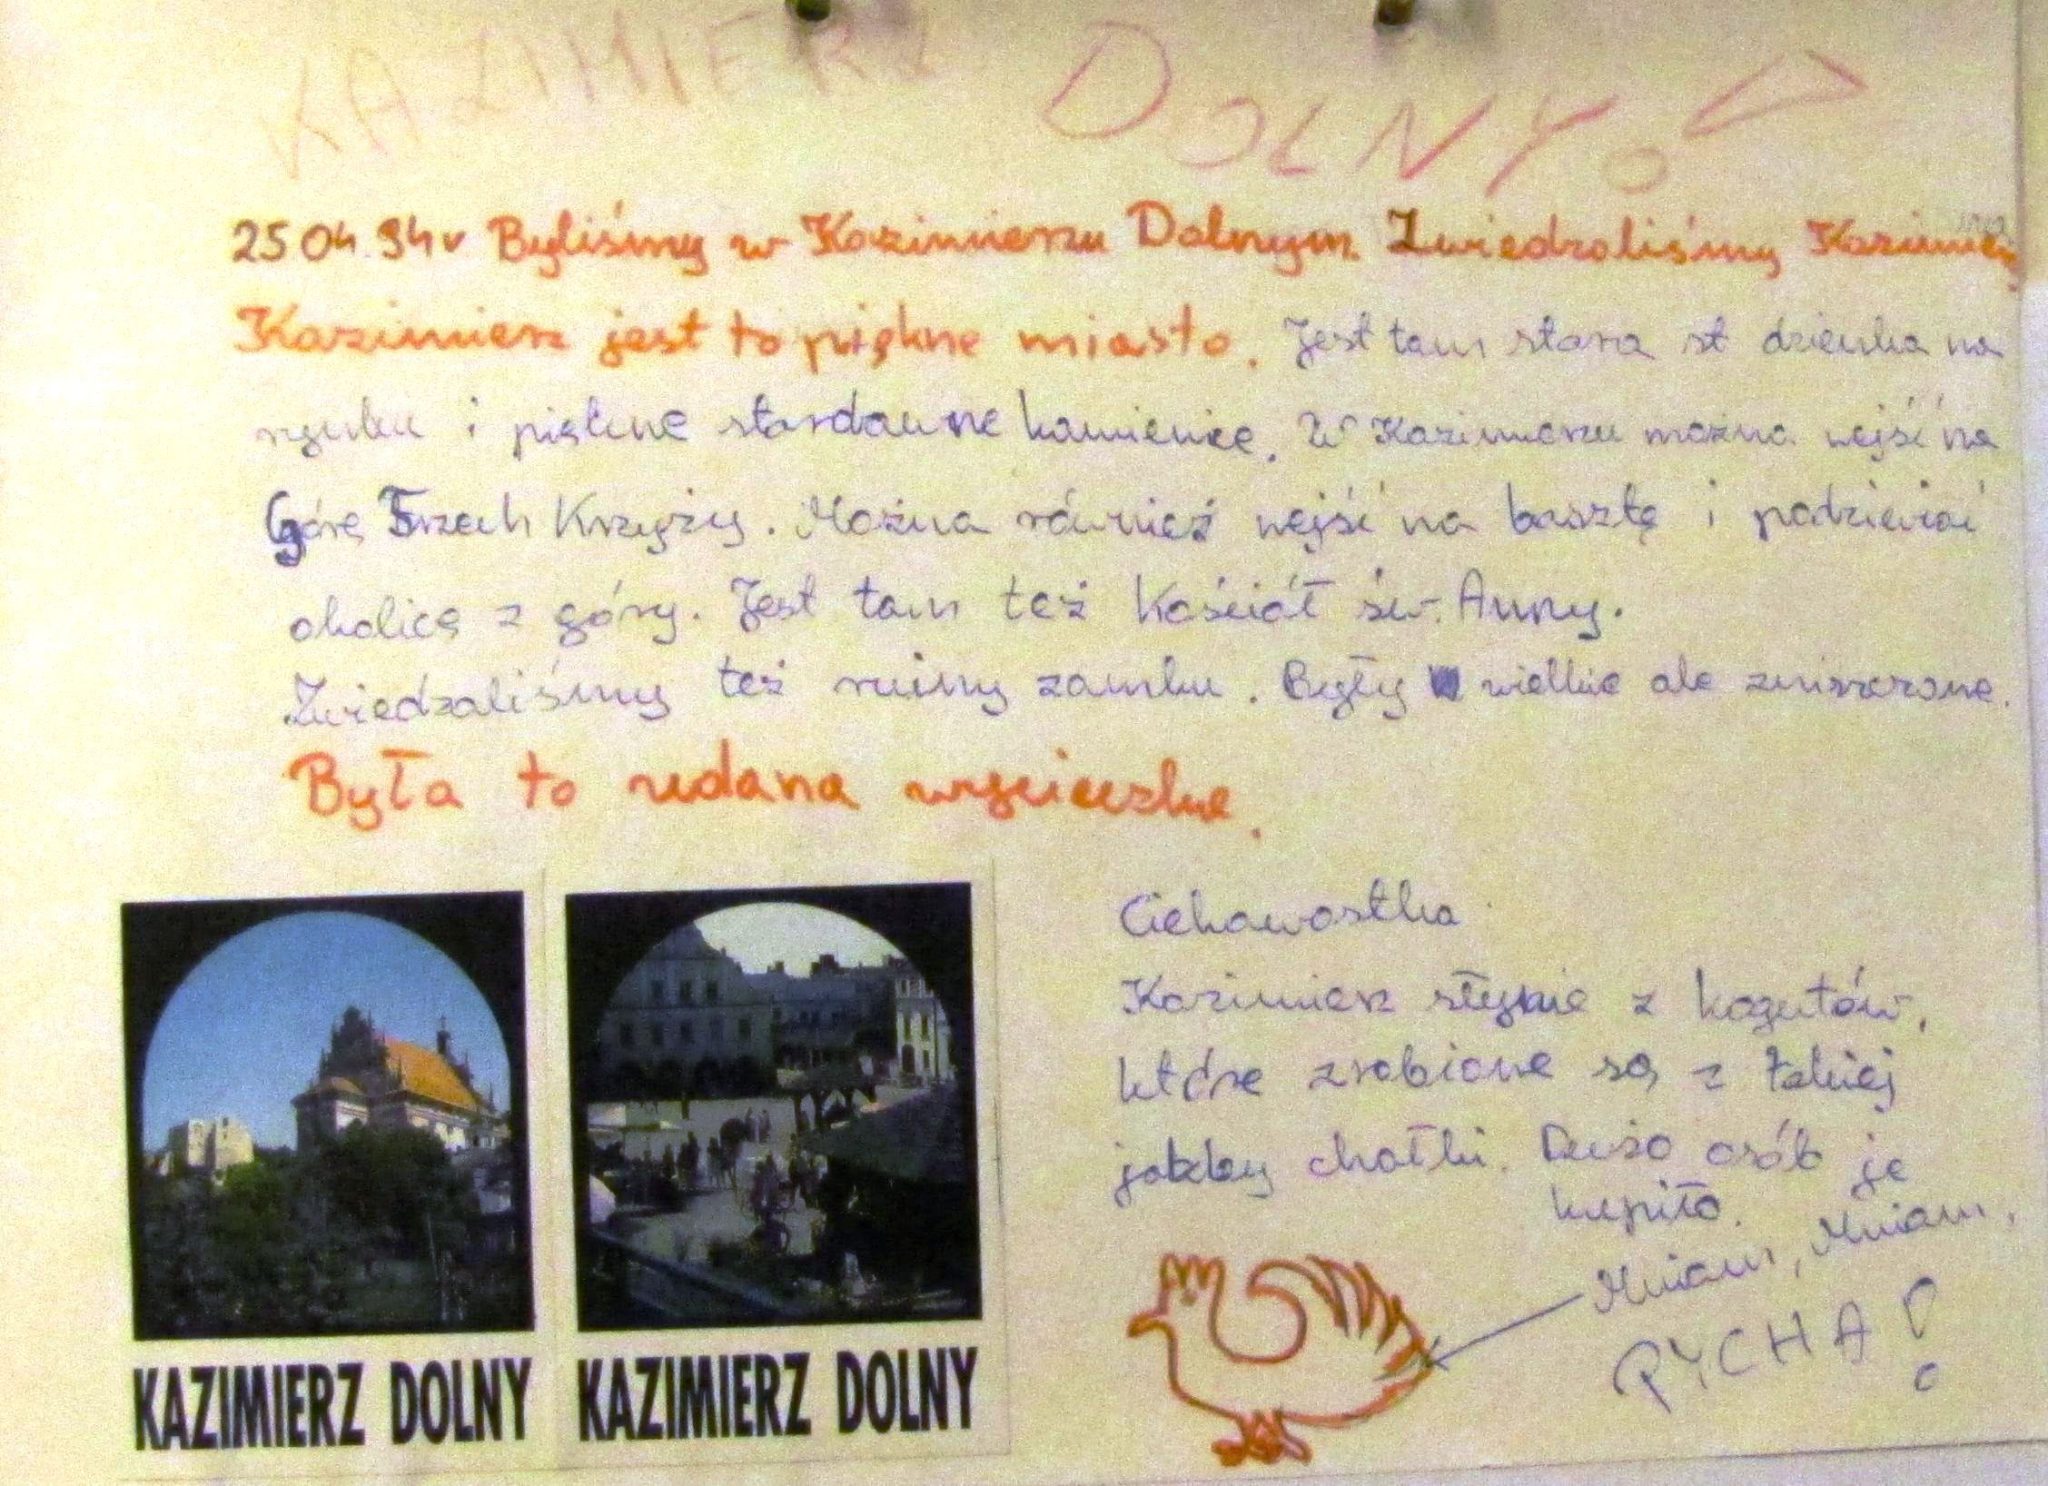 KAZIMIERZ DOLNY!
25 04. 94r Byliśmy w Kazimierzu Dolnym. Zwiedzaliśmy Kazimierz
Kazimierz jest to piękne miasto. Jest tam stara st dzienka na
rynku i piękne stardawne kamienice. W Kazimierzu można wejść na
Górę Trzech Krzyży. Można również wejść na basztę i podziwiać
okolicę z góry. Jest tam też Kościół św. Anny.
Zwiedzaliśmy też ruiny zamku. Były wielkie ale zniszczone.
Była to udana wycieczka.
Ciekawostka
Kazimierz słynie z kogutów,
które zrobione są z takiej
jakby chałki. Dużo osób je
kupiło.
Mniam, Mniam,
PYCHA!
KAZIMIERZ DOLNY
KAZIMIERZ DOLNY